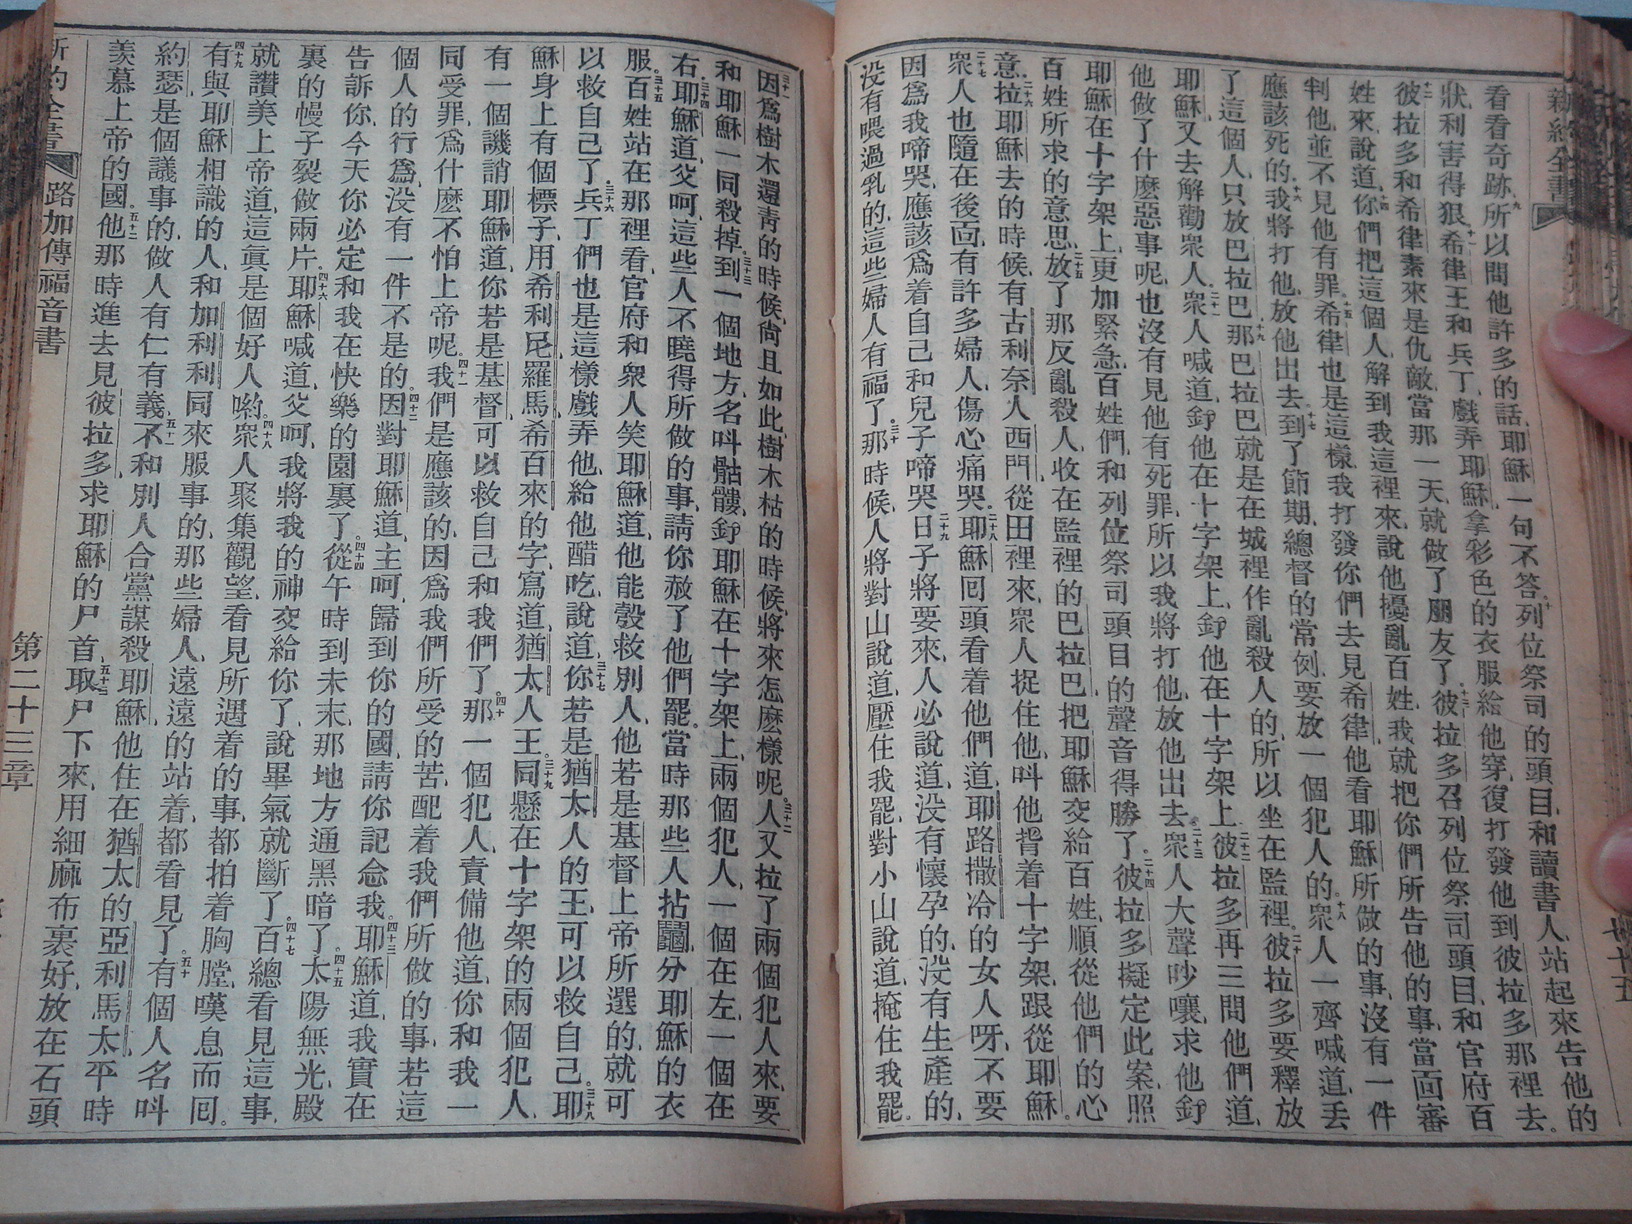 新約全書
七十五
看看奇跡、九所以問他許多的話、耶穌一句不答、十列位祭司的頭目、和讀書人、站起來告他的
狀、利害得狠、十一希律王和兵丁、戲弄耶穌、拿彩色的衣服給他穿、復打發他到彼拉多那裡去。
十二彼拉多和希律素來是仇敵、當那一天、就做了朋友了。十三彼拉多召列位祭司頭目、和官府百
姓來、說道、十四你們把這個人、解到我這裡來、說他擾亂百姓、我就把你們所告他的事、當面審
判他、並不見他有罪、十五希律也是這樣、我打發你們去見希律、他看耶穌所做的事、沒有一件
應該死的、十六我將打他、放他出去、十七到了節期、總督的常例、要放一個犯人的、十八衆人一齊喊道、丢
了這個人、只放巴拉巴、十九那巴拉巴、就是在城裡作亂殺人的、所以坐在監裡。二十彼拉多要釋放
耶穌、又去解勸衆人、二十一衆人喊道、釘他在十字架上、釘他在十字架上、二十二彼拉多再三問他們道、
他做了什麼惡事呢、也沒有見他有死罪、所以我將打他、放他出去、二十三衆人大聲吵嚷、求他釘
耶穌在十字架上、更加緊急、百姓們、和列位祭司頭目的聲音得勝了。二十四彼拉多擬定此案、照
百姓所求的意思、二十五放了那反亂殺人、收在監裡的巴拉巴、把耶穌交給百姓、順從他們的心
意、二十六拉耶穌去的時候、有古利奈人西門、從田裡來、衆人捉住他、叫他揹着十字架、跟從耶穌。
二十七衆人也隨在後面、有許多婦人、傷心痛哭、二十八耶穌囘頭看着他們道、耶路撒冷的女人呀、不要
因爲我啼哭、應該爲着自己和兒子啼哭、二十九日子將要來、人必說道、沒有懷孕的、沒有生產的、
沒有喂過乳的、這些婦人有福了、三十那時候、人將對山說道、壓住我罷、對小山說道、掩住我罷。
三十一因爲樹木還青的時候、尙且如此、樹木枯的時候、將來怎麼樣呢。三十二人又拉了兩個犯人來、要
和耶穌一同殺掉。三十三到一個地方、名呌骷髏、釘耶穌在十字架上、兩個犯人、一個在左、一個在
右。三十四耶穌道、父呵、這些人不曉得所做的事、請你赦了他們罷、當時那些人拈鬮、分耶穌的衣
服。三十五百姓站在那裡看、官府和衆人笑耶穌道、他能彀救別人、他若是基督、上帝所選的、就可
以救自己了。三十六兵丁們也是這樣戲弄他、給他醋吃、說道、三十七你若是猶太人的王、可以救自己、三十八耶
穌身上有個標子、用希利尼羅馬希百來的字、寫道、猶太人王、三十九同懸在十字架的兩個犯人、
有一個譏誚耶穌道、你若是基督、可以救自己和我們了。四十那一個犯人、責備他道、你和我一
同受罪、爲什麼不怕上帝呢。四十一我們是應該的、因爲我們所受的苦、配着我們所做的事、若這
個人的行爲、沒有一件不是的、四十二因對耶穌道、主呵、歸到你的國、請你記念我。四十三耶穌道、我實在
告訴你、今天你必定和我在快樂的園裏了。四十四從午時到未末、那地方通黑暗了。四十五太陽無光、殿
裏的幔子裂做兩片。四十六耶穌喊道、父呵、我將我的神交給你了、說畢氣就斷了。四十七百總看見這事、
就讚美上帝道、這眞是個好人喲。四十八衆人聚集觀望、看見所遇着的事、都拍着胸膛、嘆息而囘。
四十九有與耶穌相識的人、和加利利同來服事的、那些婦人、遠遠的站着、都看見了。五十有個人名呌
約瑟、是個議事的、做人有仁有義、五十一不和別人合黨謀殺耶穌、他住在猶太的亞利馬太、平時
羨慕上帝的國、五十二他那時進去見彼拉多、求耶穌的尸首、五十三取尸下來、用細麻布裹好、放在石頭
新約全書
路加傳福音書
第二十三章